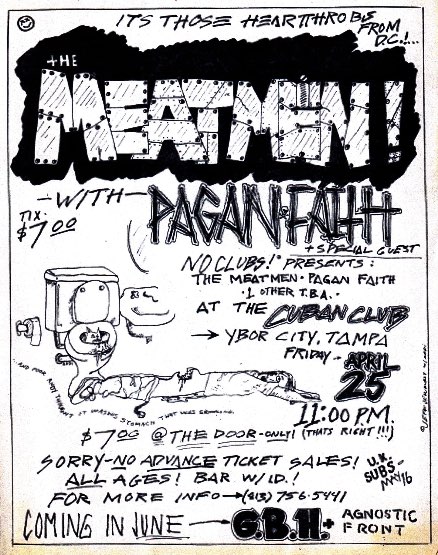 ITS THOSE HEARTTHROBS
FROM
D.C.!...
THE
MEATMEN!
-WITH-
PAGAN FAITH
TIX.
$7.00
+ SPECIAL GUEST
NO CLUBS! PRESENTS:
THE MEATMEN · PAGAN FAITH
· 1 OTHER T.B.A. ·
AT THE CUBAN CLUB
→ YBOR CITY, TAMPA
FRIDAY - APRIL
25
11:00 P.M.
(THATS RIGHT!!!)
$7.00 @ THE DOOR-ONLY!
SORRY-NO ADVANCE TICKET SALES!
ALL AGES! BAR W/I.D.!
U.K.
SUBS-
MAY 16
FOR MORE INFO→(813) 756-5441
COMING IN JUNE → G.B.H. +
AGNOSTIC
FRONT